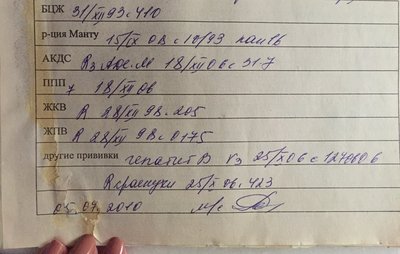 БЦЖ 31/XII 93 с 410
р-ция Манту 15/IX 08 с 10/93
АКДС R3 АДС-М 18/XII 06 с 317
ППП 7 18/XII 06
ЖКВ R 28/XII 98. 205
ЖПВ R 28/XII 98 с 0175
другие прививки гепатит В V3 25/X 06 с
R краснухи 25/X 06. 423
05.07.2010 м/с